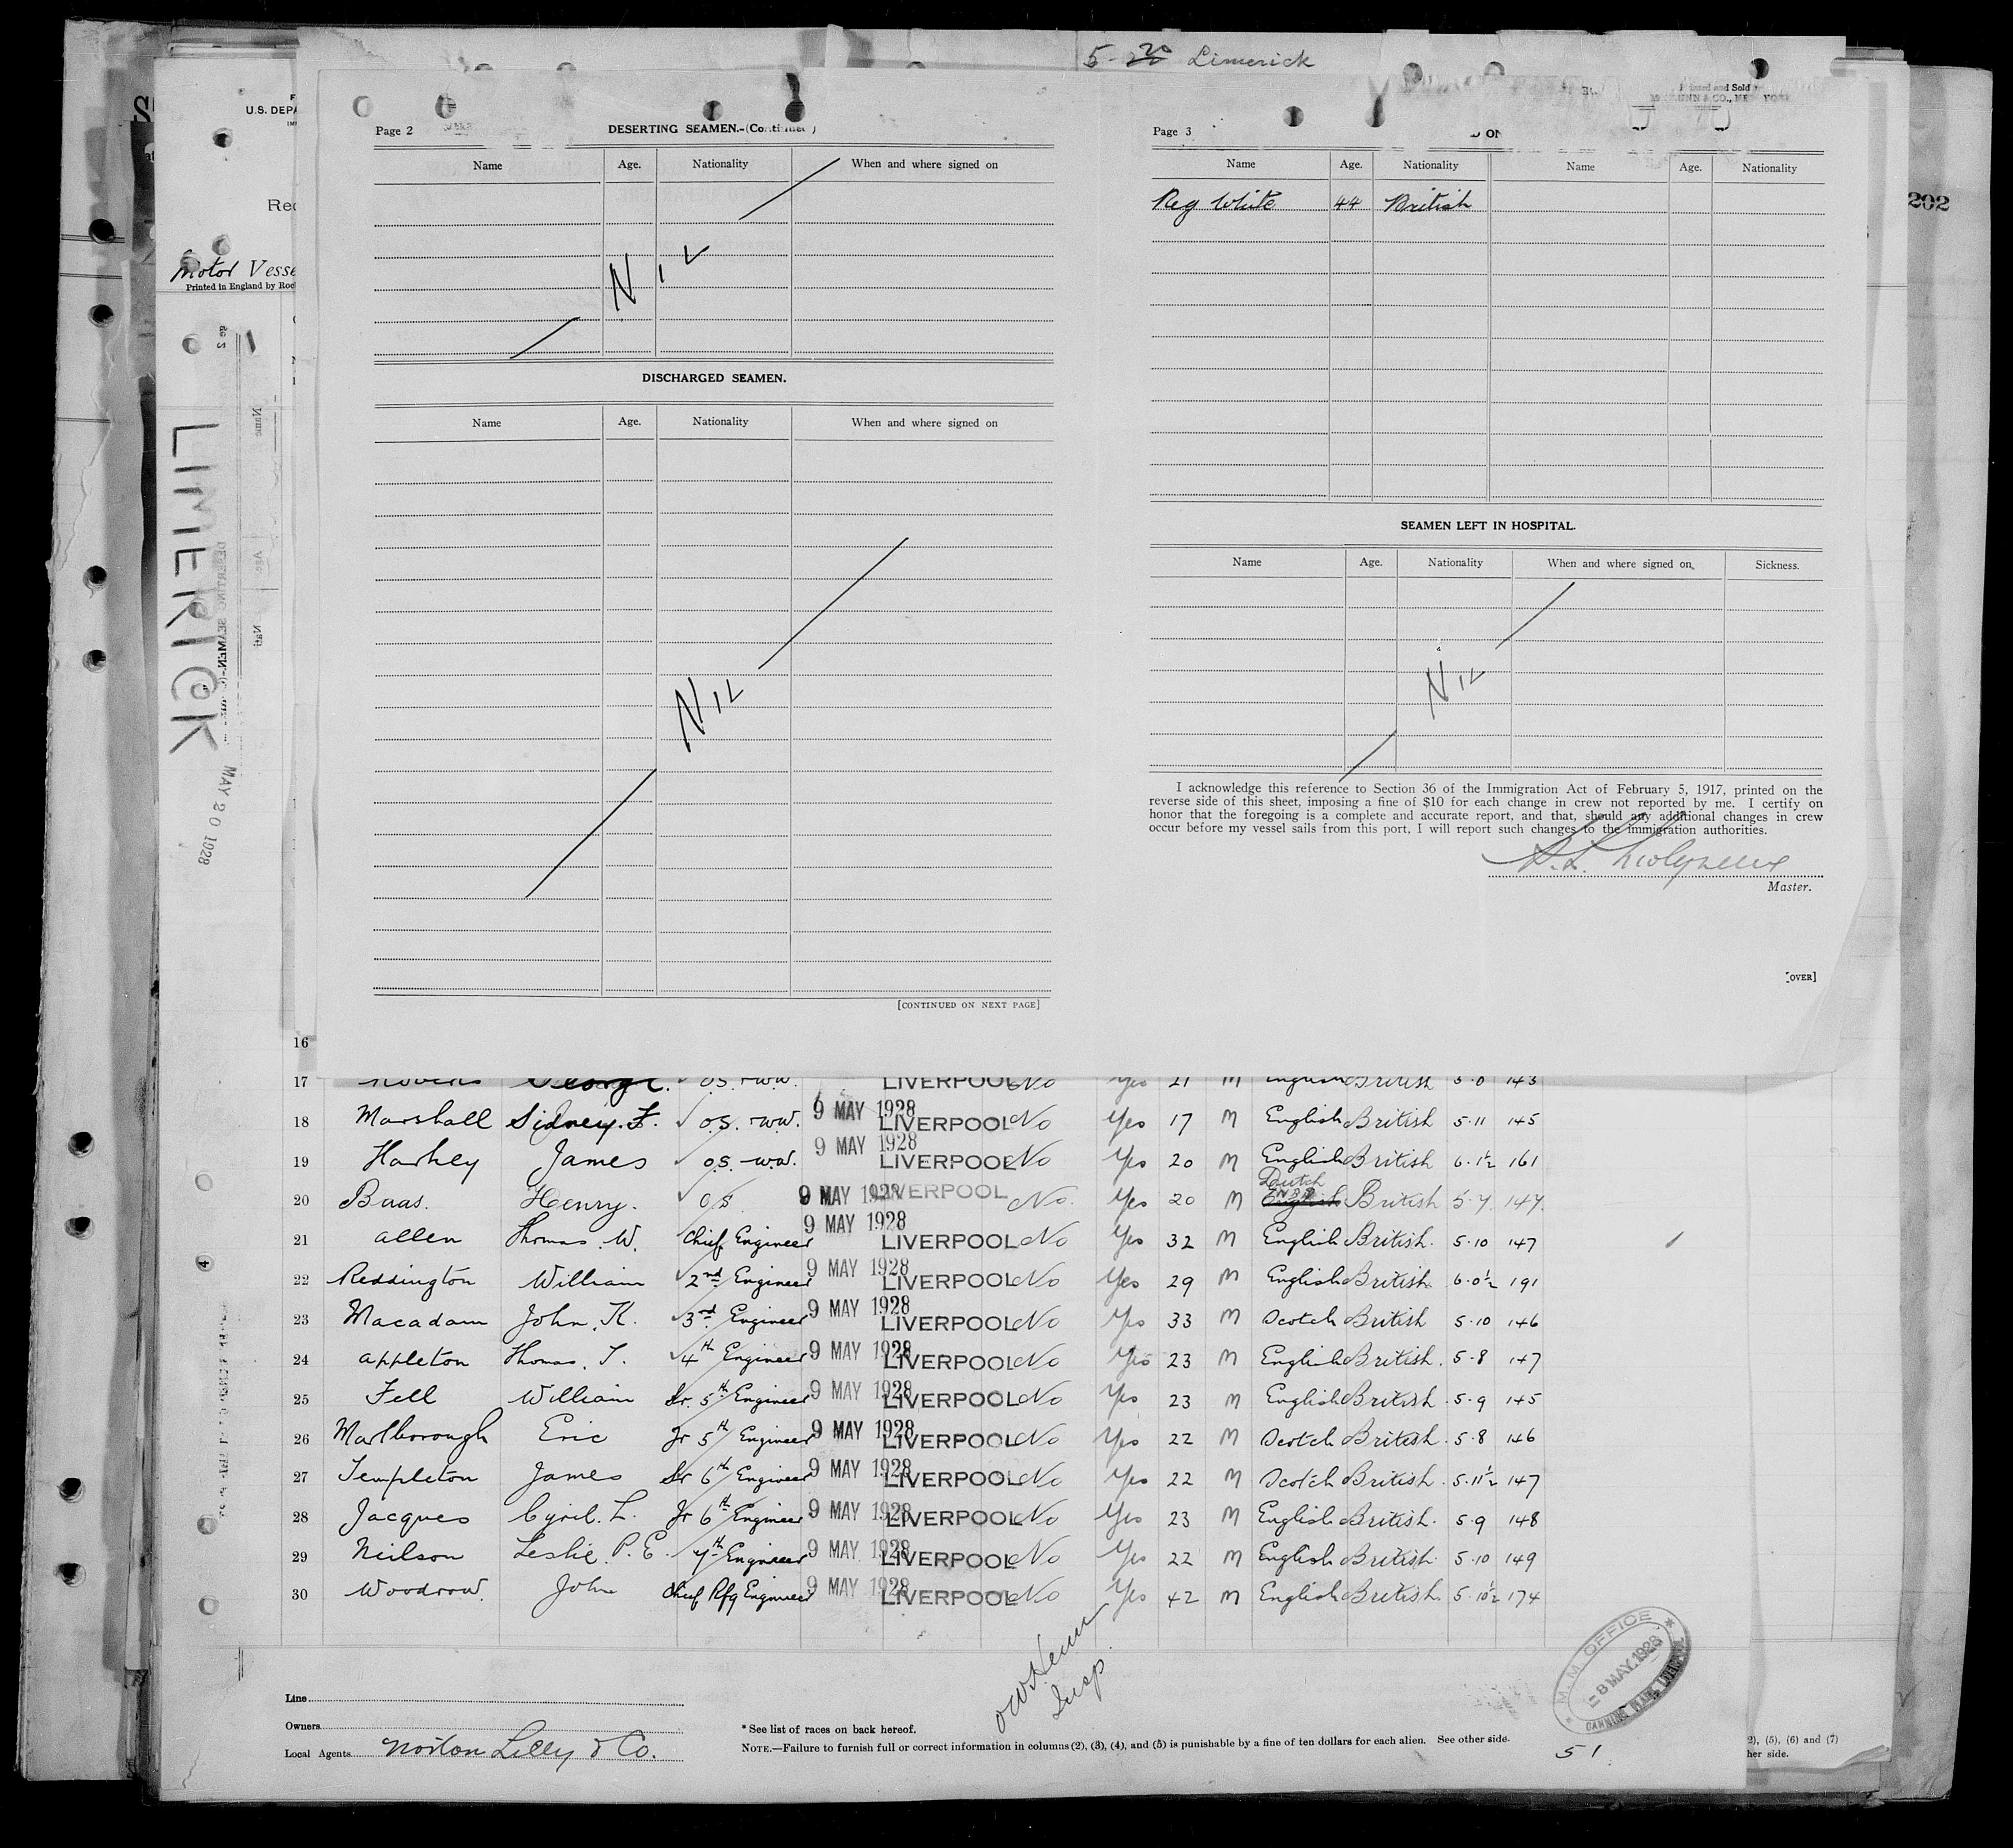 5-20 Limerick
Page 2
DESERTING SEAMEN.-(Continued)
Name Age. Nationality When and where signed on
NIL
DISCHARGED SEAMEN.
Name Age. Nationality When and where signed on
NIL
[CONTINUED ON NEXT PAGE]
Printed and Sold
NEW YORK
Page 3
Name Age. Nationality Name Age. Nationality
Reg White 44 British
SEAMEN LEFT IN HOSPITAL.
Name Age. Nationality When and where signed on. Sickness.
NIL
I acknowledge this reference to Section 36 of the Immigration Act of February 5, 1917, printed on the
reverse side of this sheet, imposing a fine of $10 for each change in crew not reported by me. I certify on
honor that the foregoing is a complete and accurate report, and that, should any additional changes in crew
occur before my vessel sails from this port, I will report such changes to the immigration authorities.
Master.
[OVER]
202
U.S. DEPA
Rec
Motor Vesse
Printed in England by Roc
LIMERICK
MAY 20 1928
16
17 George. O.S. - W.W. LIVERPOOL No Yes 21 M English British 5-8 143
18 Marshall Sidney. F. O.S. - W.W. 9 MAY 1928 LIVERPOOL No Yes 17 M English British 5-11 145
19 Harkey James O.S. - W.W. 9 MAY 1928 LIVERPOOL No Yes 20 M English British 6.1½ 161
20 Baas. Henry. O.S 9 MAY 1928 LIVERPOOL No. Yes 20 M Dutch English British 5-7. 147.
21 Allen Thomas. W. Chief Engineer 9 MAY 1928 LIVERPOOL No Yes 32 M English British. 5-10 147
22 Reddington William 2nd Engineer 9 MAY 1928 LIVERPOOL No Yes 29 M English British. 6.0½ 191
23 Macadam John. K. 3rd Engineer 9 MAY 1928 LIVERPOOL No Yes 33 M Scotch British 5-10 146
24 Appleton Thomas. T. 4th Engineer 9 MAY 1928 LIVERPOOL No Yes 23 M English British. 5-8 147
25 Fell William Sr. 5th Engineer 9 MAY 1928 LIVERPOOL No Yes 23 M English British. 5-9 145
26 Marlborough Eric Jr 5th Engineer 9 MAY 1928 LIVERPOOL No Yes 22 M Scotch British. 5-8 146
27 Templeton James Sr 6th Engineer 9 MAY 1928 LIVERPOOL No Yes 22 M Scotch British. 5-11½ 147
28 Jacques Cyril. L. Jr 6th Engineer 9 MAY 1928 LIVERPOOL No Yes 23 M English British. 5-9 148
29 Neilson Leslie. P. E. 7th Engineer 9 MAY 1928 LIVERPOOL No Yes 22 M English British 5-10 149
30 Woodrow. John Chief Rfg Engineer 9 MAY 1928 LIVERPOOL No Yes 42 M English British. 5-10½ 174
Insp.
M. M. OFFICE
8 MAY. 1928
CANNING
51
Line
Owners
Local Agents Norton Lilly & Co.
* See list of races on back hereof.
NOTE.—Failure to furnish full or correct information in columns (2), (3), (4), and (5) is punishable by a fine of ten dollars for each alien. See other side.
2), (5), (6) and (7)
her side.